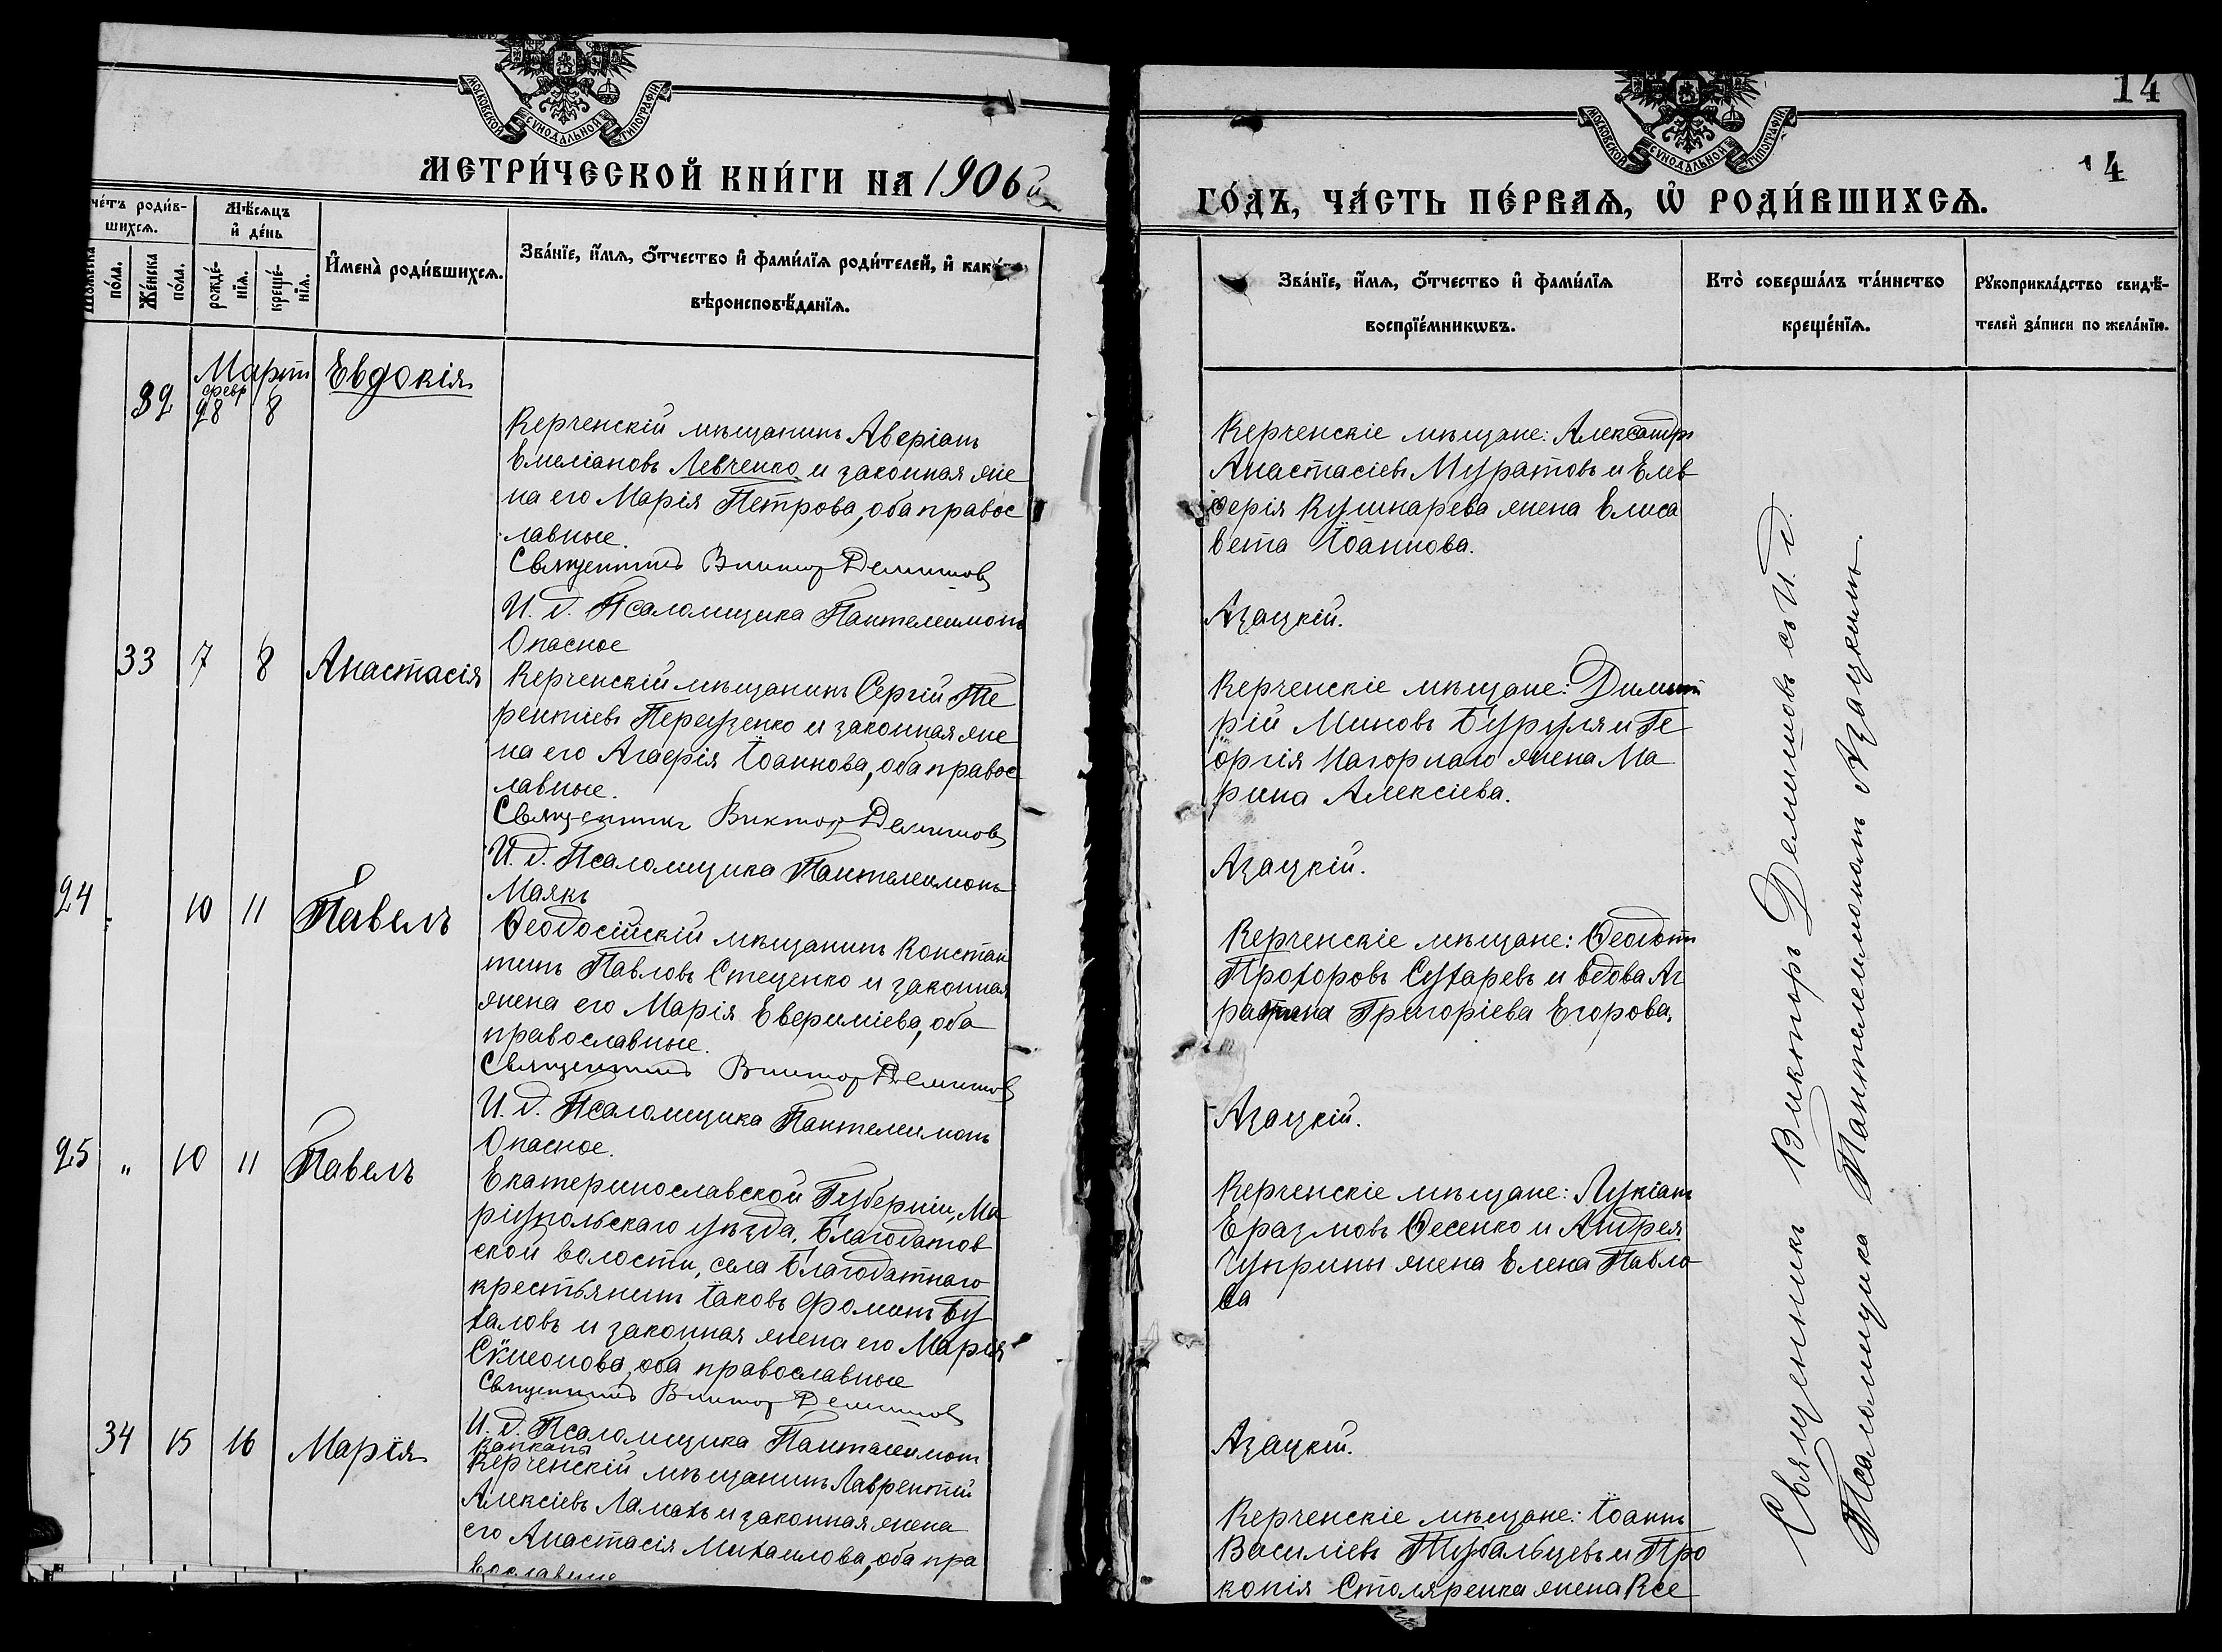 МОСКОВСКОЙ СѴНОДАЛЬНОЙ ТИПОГРАФІИ
МЕТРИ́ЧЕСКОЙ КНИ́ГИ НА 1906й
че́тъ роди́в-
шихсѧ.
по́ла.
Же́нска
по́ла.
Мѣ́сѧцъ
и҆ де́нь
рожде́-
нїѧ.
креще́-
нїѧ.
И҆мена̀ роди́вшихсѧ.
Зва́нїе, и҆́мѧ, ѻ҆́тчество и҆ фами́лїѧ роди́телей, и҆
вѣроисповѣ́данїѧ.
Мартъ
32
февр
28
8
Евдокія
Керченскій мѣщанинъ Аверіанъ
Емеліановъ Левченко и законная же
на его Марія Петрова, оба правос
лавные.
Священникъ Викторъ Демишовъ
И. д. Псаломщика Пантелеимонъ
Опасное
33
7
8
Анастасія
Керченскій мѣщанинъ Сергій Те
рентіевъ Перцзенко и законная же
на его Агафія Іоаннова, оба правос
лавные.
Священникъ Викторъ Демишовъ
И. д. Псаломщика Пантелеимонъ
Маякъ
24
10
11
Павелъ
Ѳеодосійскій мѣщанинъ Констан
тинъ Павловъ Стеценко и законная
жена его Марія Евфиміева, оба
православные.
Священникъ Викторъ Демишовъ
И. д. Псаломщика Пантелеимонъ
Опасное.
25
"
10
11
Павелъ
Екатеринославской Губерніи, Ма
ріупольскаго уѣзда, Благодатов
ской волости, села Благодатнаго
крестьянинъ Іаковъ Фоминъ Бу
халовъ и законная жена его Марія
Сѵмеонова, оба православные
Священникъ Викторъ Демишовъ
И. д. Псаломщика Пантелеимонъ
Капканы
34
15
16
Марія
Керченскій мѣщанинъ Лаврентій
Алексіевъ Ламахъ и законная жена
его Анастасія Михаилова, оба пра
вославные
14
МОСКОВСКОЙ СѴНОДАЛЬНОЙ ТИПОГРАФІИ
14
ГО́ДЪ, ЧА́СТЬ ПЕ́РВАѦ, Ѡ҆ РОДИ́ВШИХСѦ.
Зва́нїе, и҆́мѧ, ѻ҆́тчество и҆ фами́лїѧ
воспрїе́мникѡвъ.
Кто̀ соверша́лъ та́инство
креще́нїѧ.
Рꙋкоприкла́дство свидѣ́-
телей за́писи по жела́нїю.
Керченскіе мѣщане: Александръ
Анастасіевъ Муратовъ и Елев
ферія Кушнарева жена Елиса
вета Іоаннова.
Азацкій.
Керченскіе мѣщане: Димит
рій Миновъ Буруля и Ге
оргія Нагорнаго жена Ма
рина Алексіева.
Азацкій.
Керченскіе мѣщане: Ѳеодотъ
Прохоровъ Сухаревъ и вдова Аг
Григоріева Егорова.
Азацкій.
Керченскіе мѣщане: Лукіанъ
Еразмовъ Ѳесенко и Андрея
Чуприны жена Елена Павло
ва
Азацкій.
Керченскіе мѣщане: Іоаннъ
Василіевъ Тубальцевъ и Про
копія Столяренка жена Ксе
Священникъ Викторъ Демишовъ съ И. д.
Псаломщика Пантелеимономъ Азацкимъ.